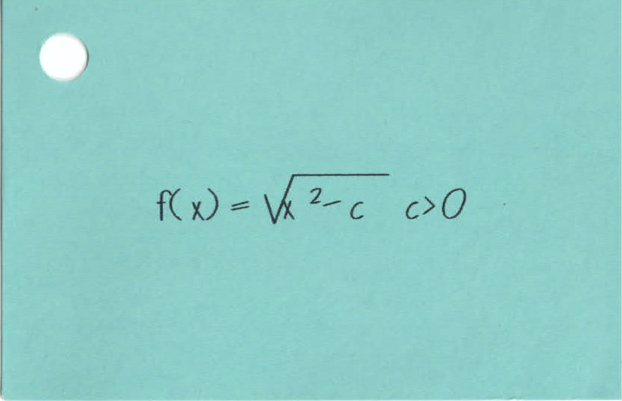 f(x) = √x²-c c>0